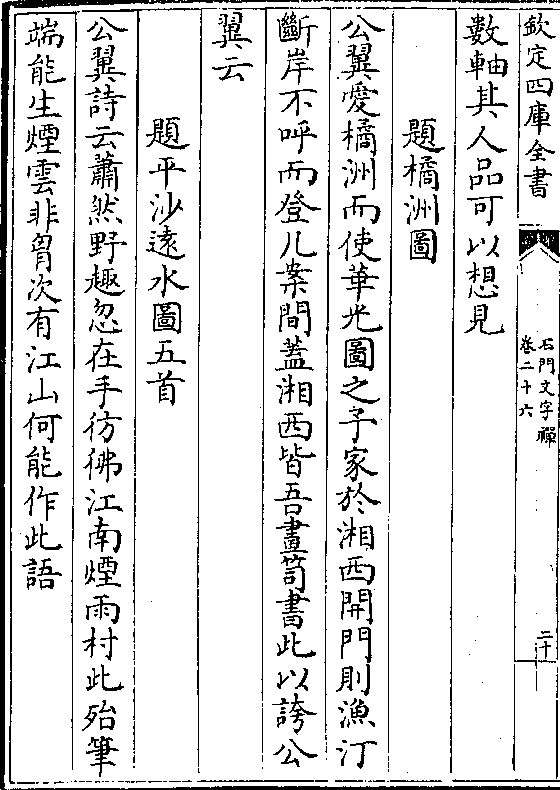 欽定四庫全書
石門文字禪
卷二十六
二十
數軸其人品可以想見
題橘洲圖
公翼愛橘洲而使華光圖之予家於湘西開門則漁汀
斷岸不呼而登几案間蓋湘西皆吾畫笥書此以誇公
翼云
題平沙遠水圖五首
公翼詩云蕭然野趣忽在手彷彿江南煙雨村此殆筆
端能生煙雲非胷次有江山何能作此語